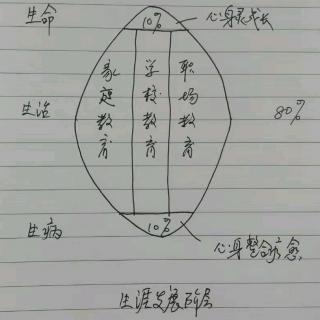 生命
10%
心身灵成长
家庭教育
学校教育
职场教育
生活
80%
生病
10%
心身整合疗愈
生涯发展阶层